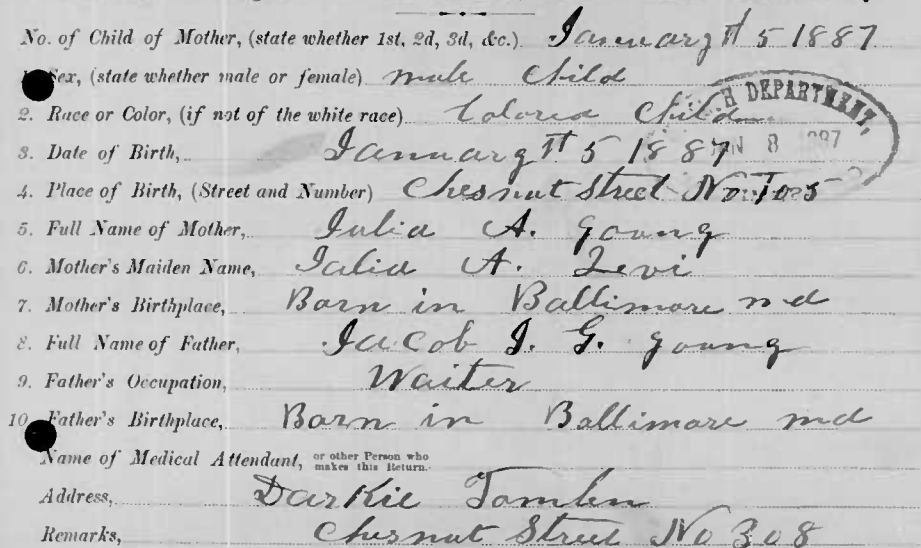 No. of Child of Mother, (state whether 1st, 2d, 3d, &c.) January th 5 1887
Sex, (state whether male or female) male child
2. Race or Color, (if not of the white race) Colored Child
H DEPARTMENT,
3. Date of Birth, January th 5 1887
8
4. Place of Birth, (Street and Number) Chesnut Street No
5. Full Name of Mother, Julia A. young
6. Mother's Maiden Name, Julia A. Levi
7. Mother's Birthplace, Born in Baltimore md
8. Full Name of Father, Jacob J. G. young
9. Father's Occupation, Waiter
10 Father's Birthplace, Born in Baltimore md
Name of Medical Attendant, or other Person who makes this Return.
Address, Darkie Tomlen
Remarks, Chesnut Street No 308